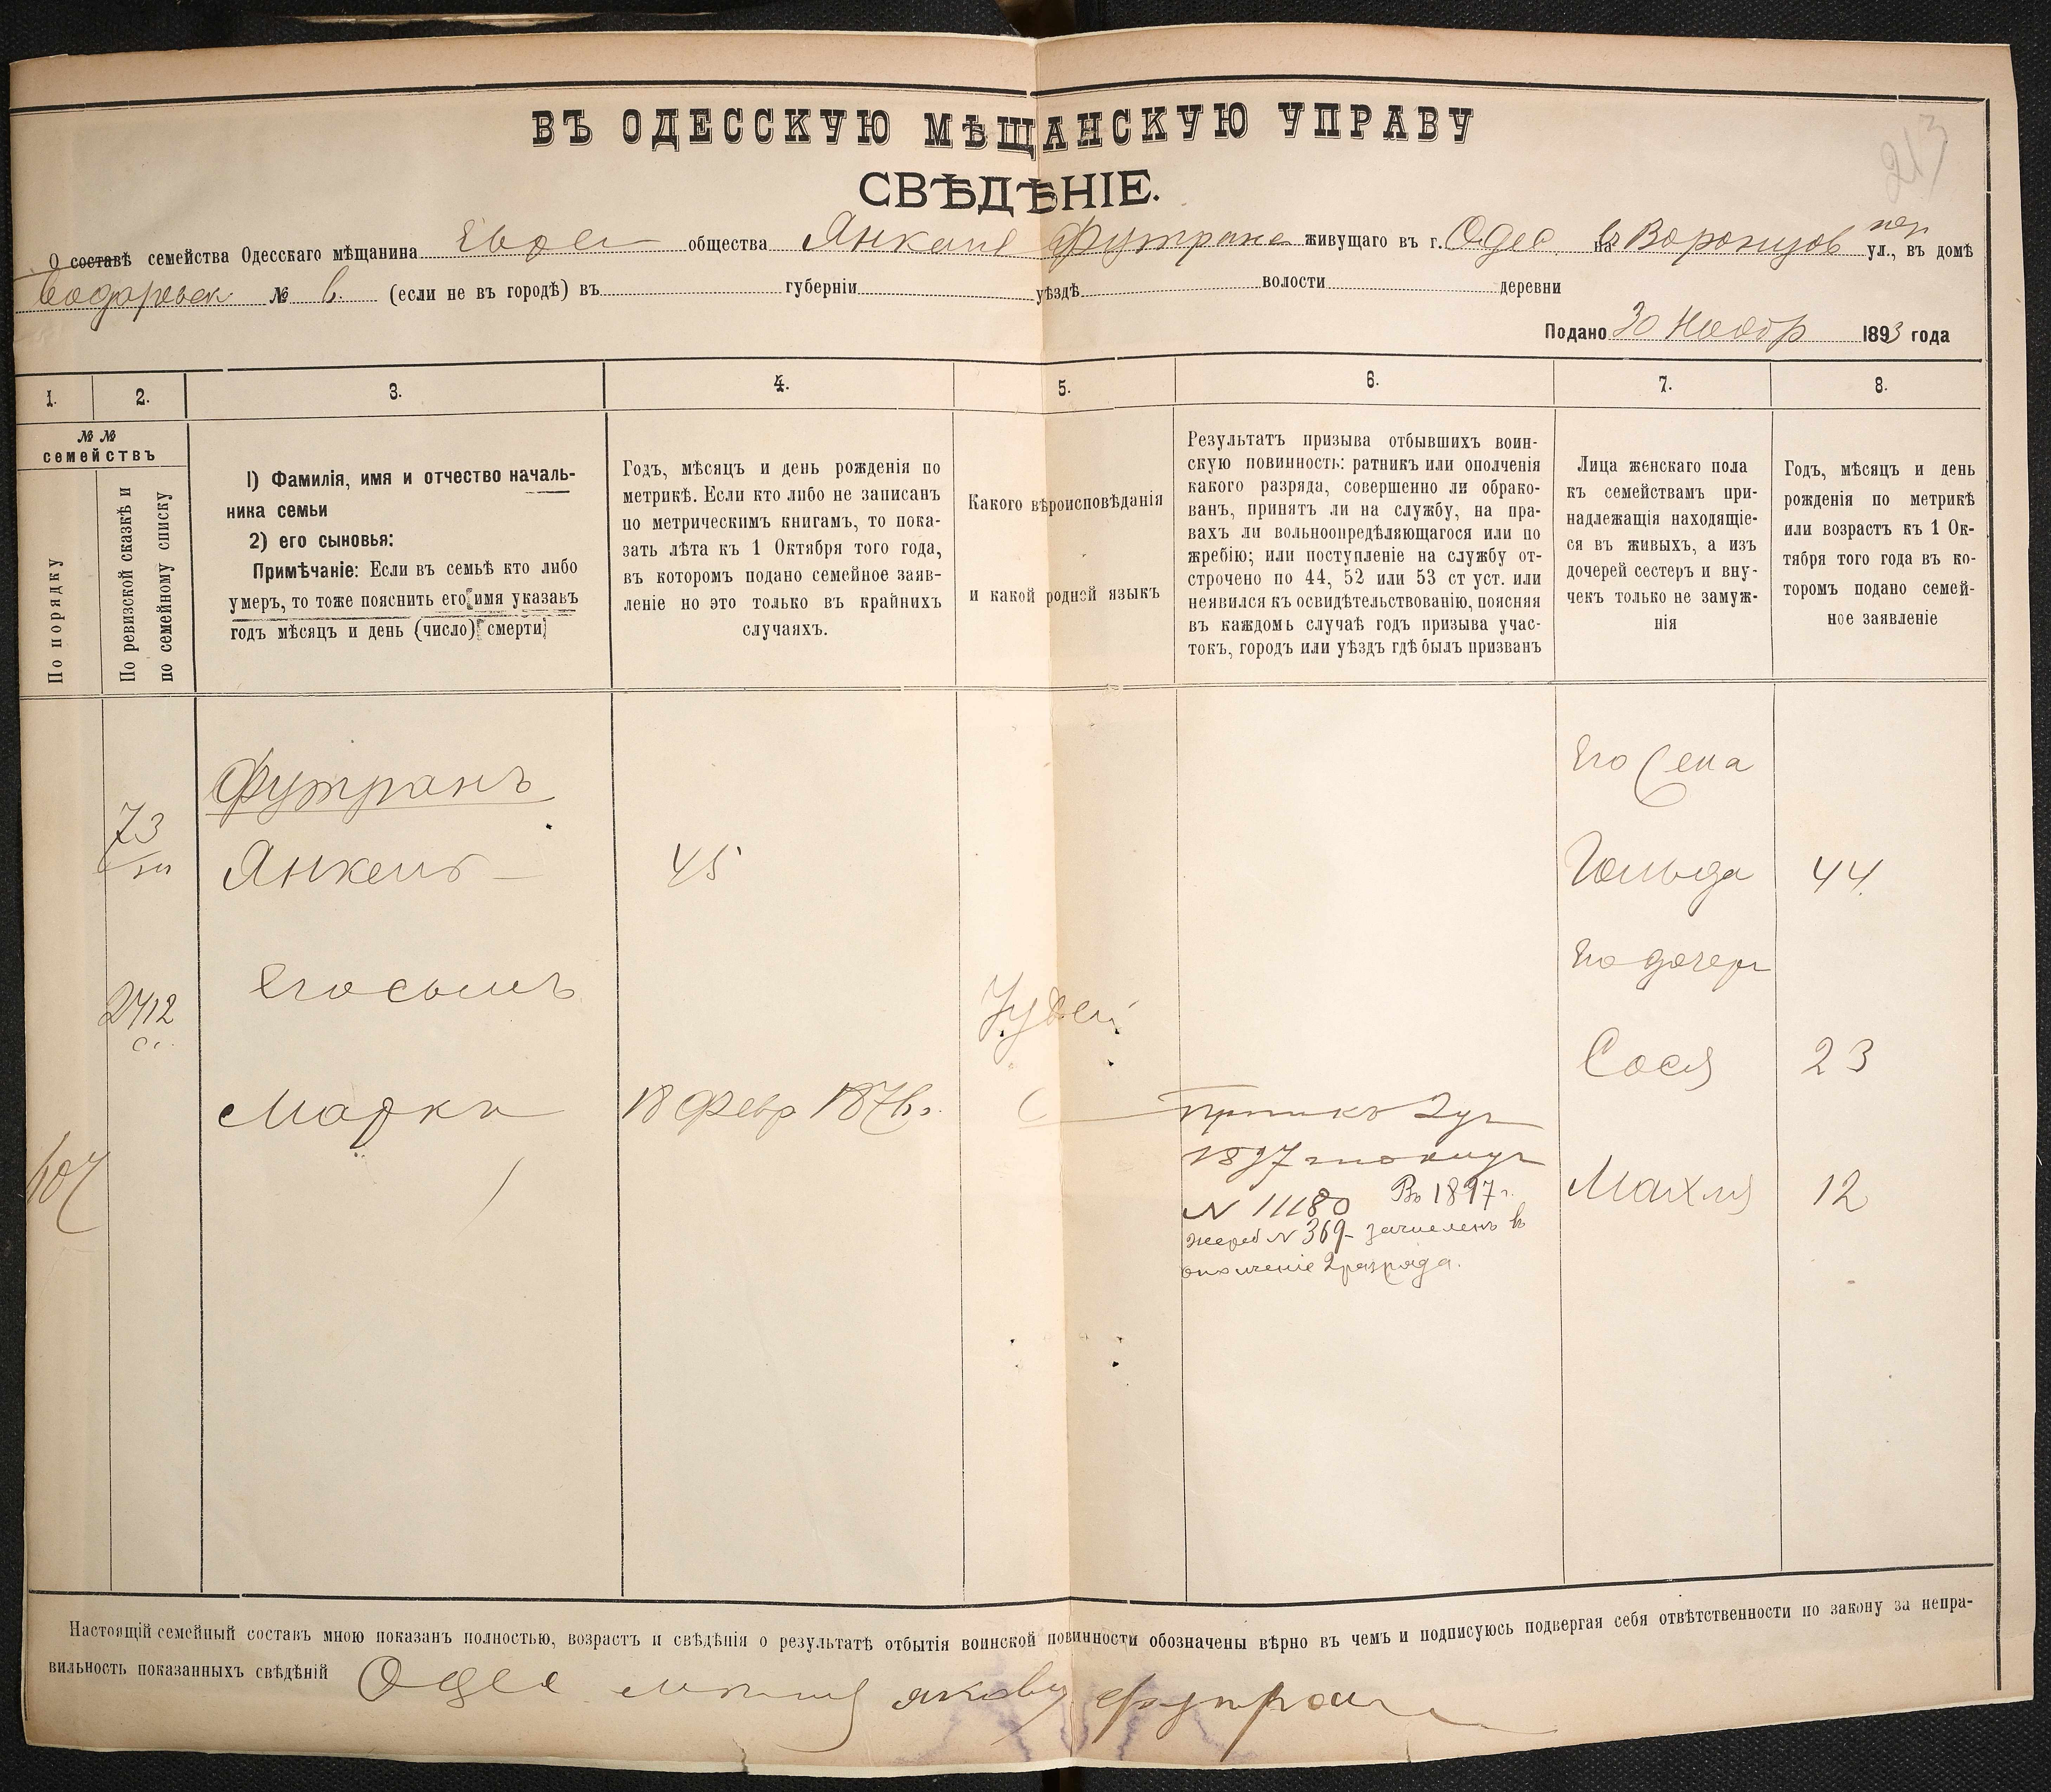 213
ВЪ ОДЕССКУЮ МѢЩАНСКУЮ УПРАВУ
СВѢДѢНІЕ.
О составѣ семейства Одесскаго мѣщанина Еврея общества Янкеля Футрана живущаго въ г. Одес на Воронцов пер ул., въ домѣ
№ (если не въ городѣ) въ губерніи уѣздѣ волости деревни
Подано 30 Ноябр 1893 года
1. 2. 3. 4. 5. 6. 7. 8.
№ №
семействъ
По порядку
По ревизской сказкѣ и
по семейному списку
1) Фамилія, имя и отчество началь-
ника семьи
2) его сыновья:
Примѣчаніе: Если въ семьѣ кто либо
умеръ, то тоже пояснить его имя указавъ
годъ мѣсяцъ и день (число) смерти
Годъ, мѣсяцъ и день рожденія по
метрикѣ. Если кто либо не записанъ
по метрическимъ книгамъ, то пока-
зать лѣта къ 1 Октября того года,
въ которомъ подано семейное заяв-
леніе но это только въ крайнихъ
случаяхъ.
Какого вѣроисповѣданія
и какой родной языкъ
Результатъ призыва отбывшихъ воин-
скую повинность: ратникъ или ополченія
какого разряда, совершенно ли обрако-
ванъ, принятъ ли на службу, на пра-
вахъ ли вольноопредѣляющагося или по
жребію; или поступленіе на службу от-
строчено по 44, 52 или 53 ст уст. или
неявился къ освидѣтельствованію, поясняя
въ каждомъ случаѣ годъ призыва учас-
токъ, городъ или уѣздъ гдѣ былъ призванъ
Лица женскаго пола
къ семействамъ при-
надлежащія находящіе-
ся въ живыхъ, а изъ
дочерей сестеръ и вну-
чекъ только не замуж-
нія
Годъ, мѣсяцъ и день
рожденія по метрикѣ
или возрастъ къ 1 Ок-
тября того года въ ко-
торомъ подано семей-
ное заявленіе
Футранъ
Его Сена
73
Янкель 45
Гольда 44
Его сынъ
Его дочери
2412
Іудей
Сося 23
Марко 18 Февр 1876 г.
1897
Махля 12
N 11180 Въ 1897 г.
жереб N 369 зачисленъ въ
ополченіе 2 разряда.
Настоящій семейный составъ мною показанъ полностью, возрастъ и свѣдѣнія о результатѣ отбытія воинской повинности обозначены вѣрно въ чемъ и подписуюсь подвергая себя отвѣтственности по закону за непра-
вильность показанныхъ свѣдѣній Одес